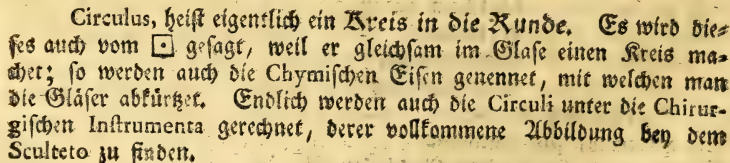 Circulus, heiſt eigentlich ein Kreis in die Runde. Es wird die⸗
ſes auch vom ⊡ geſagt, weil er gleichſam im Glaſe einen Kreis ma⸗
chet; ſo werden auch die Chymiſchen Eiſen genennet, mit welchen man
die Gläſer abkürtzet. Endlich werden auch die Circuli unter die Chirur⸗
giſchen Inſtrumenta gerechnet, derer vollkommene Abbildung bey dem
Sculteto zu finden.